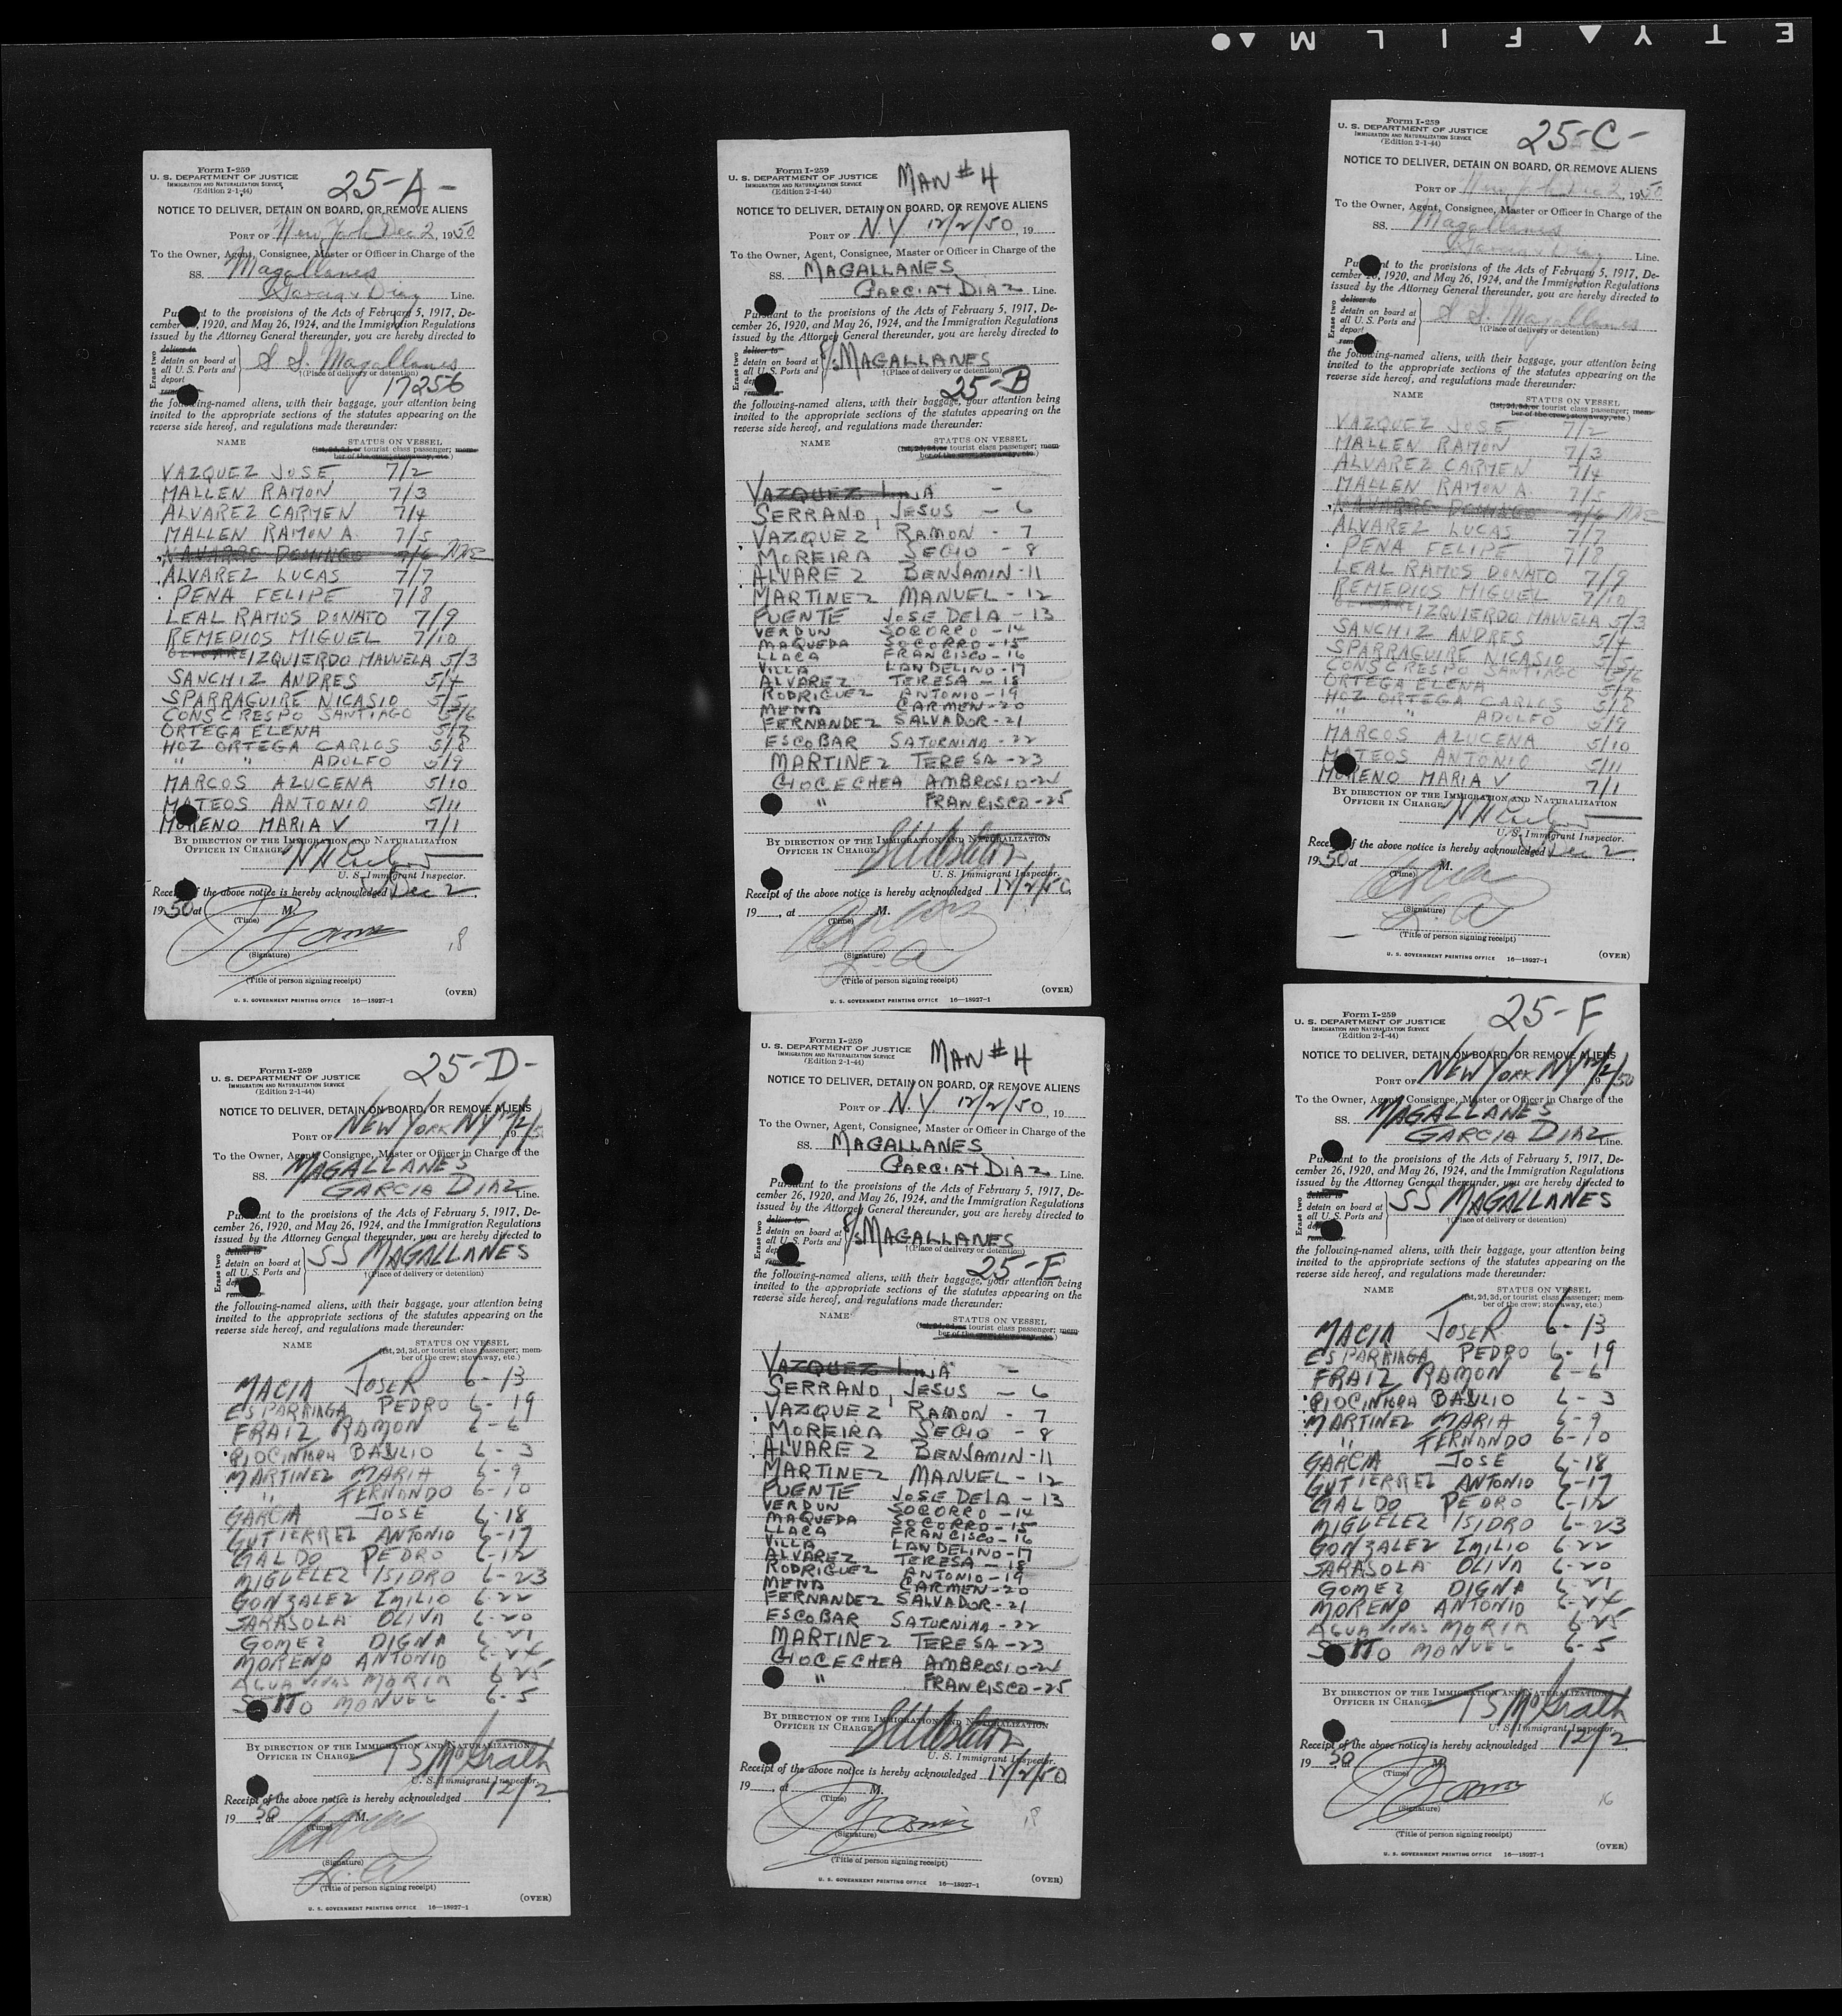 E T Y ▲ F I L M ▲ ●
Form I-259
U. S. DEPARTMENT OF JUSTICE
IMMIGRATION AND NATURALIZATION SERVICE
(Edition 2-1-44)
25-A-
NOTICE TO DELIVER, DETAIN ON BOARD, OR REMOVE ALIENS
PORT OF New York Dec 2, 1950
To the Owner, Agent, Consignee, Master or Officer in Charge of the
SS. Magallanes
Garcia & Diaz Line.
Pursuant to the provisions of the Acts of February 5, 1917, De-
cember 26, 1920, and May 26, 1924, and the Immigration Regulations
issued by the Attorney General thereunder, you are hereby directed to
Erase two
deliver to
detain on board at
all U. S. Ports and
deport
remove
S S. Magallanes
†(Place of delivery or detention)
17256
the following-named aliens, with their baggage, your attention being
invited to the appropriate sections of the statutes appearing on the
reverse side hereof, and regulations made thereunder:
NAME STATUS ON VESSEL
(1st, 2d, 3d, or tourist class passenger; mem-
ber of the crew; stowaway, etc.)
VAZQUEZ JOSE 7/2
MALLEN RAMON 7/3
ALVAREZ CARMEN 7/4
MALLEN RAMON A. 7/5
NAVARRO DOMINGO 7/6
ALVAREZ LUCAS 7/7
PENA FELIPE 7/8
LEAL RAMOS DONATO 7/9
REMEDIOS MIGUEL 7/10
IZQUIERDO MANUELA 5/3
SANCHIZ ANDRES 5/4
SPARRAGUIRE NICASIO 5/5
CONS CRESPO SANTIAGO 5/6
ORTEGA ELENA 5/7
HOZ ORTEGA CARLOS 5/8
" " ADOLFO 5/9
MARCOS AZUCENA 5/10
MATEOS ANTONIO 5/11
MORENO MARIA V 7/1
BY DIRECTION OF THE IMMIGRATION AND NATURALIZATION
OFFICER IN CHARGE.
U. S. Immigrant Inspector.
Receipt of the above notice is hereby acknowledged Dec 2,
1950 at M.
(Time)
18
(Signature)
(Title of person signing receipt)
(OVER)
U. S. GOVERNMENT PRINTING OFFICE 16—18927-1
Form I-259
U. S. DEPARTMENT OF JUSTICE
IMMIGRATION AND NATURALIZATION SERVICE
(Edition 2-1-44)
MAN # 4
NOTICE TO DELIVER, DETAIN ON BOARD, OR REMOVE ALIENS
PORT OF NY 12/2/50, 19
To the Owner, Agent, Consignee, Master or Officer in Charge of the
SS. MAGALLANES
GARCIA & DIAZ Line.
Pursuant to the provisions of the Acts of February 5, 1917, De-
cember 26, 1920, and May 26, 1924, and the Immigration Regulations
issued by the Attorney General thereunder, you are hereby directed to
Erase two
deliver to
detain on board at
all U. S. Ports and
deport
remove
S/S MAGALLANES
†(Place of delivery or detention)
25-B
the following-named aliens, with their baggage, your attention being
invited to the appropriate sections of the statutes appearing on the
reverse side hereof, and regulations made thereunder:
NAME STATUS ON VESSEL
(1st, 2d, 3d, or tourist class passenger; mem-
ber of the crew; stowaway, etc.)
VAZQUEZ LINA -
SERRANO, JESUS - 6
VAZQUEZ RAMON - 7
MOREIRA SECIO - 8
ALVAREZ BENJAMIN - 11
MARTINEZ MANUEL - 12
PUENTE JOSE DELA - 13
VERDUN SOCORRO - 14
MAQUEDA SOCORRO - 15
LLACA FRANCISCO - 16
VILLA LANDELINO - 17
ALVAREZ TERESA - 18
RODRIGUEZ ANTONIO - 19
MENA CARMEN - 20
FERNANDEZ SALVADOR - 21
ESCOBAR SATURNINA - 22
MARTINEZ TERESA - 23
GIOCECHEA AMBROSIO - 24
" FRANCISCO - 25
BY DIRECTION OF THE IMMIGRATION AND NATURALIZATION
OFFICER IN CHARGE.
U. S. Immigrant Inspector.
Receipt of the above notice is hereby acknowledged 12/2/50,
19 , at M.
(Time)
(Signature)
(Title of person signing receipt)
(OVER)
U. S. GOVERNMENT PRINTING OFFICE 16—18927-1
Form I-259
U. S. DEPARTMENT OF JUSTICE
IMMIGRATION AND NATURALIZATION SERVICE
(Edition 2-1-44)
25-C-
NOTICE TO DELIVER, DETAIN ON BOARD, OR REMOVE ALIENS
PORT OF New York Dec 2, 1950
To the Owner, Agent, Consignee, Master or Officer in Charge of the
SS. Magallanes
Garcia & Diaz Line.
Pursuant to the provisions of the Acts of February 5, 1917, De-
cember 26, 1920, and May 26, 1924, and the Immigration Regulations
issued by the Attorney General thereunder, you are hereby directed to
Erase two
deliver to
detain on board at
all U. S. Ports and
deport
remove
S S. Magallanes
†(Place of delivery or detention)
the following-named aliens, with their baggage, your attention being
invited to the appropriate sections of the statutes appearing on the
reverse side hereof, and regulations made thereunder:
NAME STATUS ON VESSEL
(1st, 2d, 3d, or tourist class passenger; mem-
ber of the crew; stowaway, etc.)
VAZQUEZ JOSE 7/2
MALLEN RAMON 7/3
ALVAREZ CARMEN 7/4
MALLEN RAMON A. 7/5
NAVARRO DOMINGO 7/6
ALVAREZ LUCAS 7/7
PENA FELIPE 7/8
LEAL RAMOS DONATO 7/9
REMEDIOS MIGUEL 7/10
IZQUIERDO MANUELA 5/3
SANCHIZ ANDRES 5/4
SPARRAGUIRE NICASIO 5/5
CONS CRESPO SANTIAGO 5/6
ORTEGA ELENA 5/7
HOZ ORTEGA CARLOS 5/8
" " ADOLFO 5/9
MARCOS AZUCENA 5/10
MATEOS ANTONIO 5/11
MORENO MARIA V 7/1
BY DIRECTION OF THE IMMIGRATION AND NATURALIZATION
OFFICER IN CHARGE.
U. S. Immigrant Inspector.
Receipt of the above notice is hereby acknowledged Dec 2,
1950 at M.
(Time)
(Signature)
(Title of person signing receipt)
U. S. GOVERNMENT PRINTING OFFICE 16—18927-1 (OVER)
Form I-259
U. S. DEPARTMENT OF JUSTICE
IMMIGRATION AND NATURALIZATION SERVICE
(Edition 2-1-44)
25-D-
NOTICE TO DELIVER, DETAIN ON BOARD, OR REMOVE ALIENS
PORT OF NEW YORK NY 12/2/5
To the Owner, Agent, Consignee, Master or Officer in Charge of the
SS. MAGALLANES
GARCIA DIAZ Line.
Pursuant to the provisions of the Acts of February 5, 1917, De-
cember 26, 1920, and May 26, 1924, and the Immigration Regulations
issued by the Attorney General thereunder, you are hereby directed to
Erase two
deliver to
detain on board at
all U. S. Ports and
deport
remove
SS MAGALLANES
†(Place of delivery or detention)
the following-named aliens, with their baggage, your attention being
invited to the appropriate sections of the statutes appearing on the
reverse side hereof, and regulations made thereunder:
NAME STATUS ON VESSEL
(1st, 2d, 3d, or tourist class passenger; mem-
ber of the crew; stowaway, etc.)
MACIA JOSE R 6-13
ESPARRIAGA PEDRO 6-19
FRAIZ RAMON 6-6
RIOCINTORA BASILIO 6-3
MARTINEZ MARIA 6-9
" FERNANDO 6-10
GARCIA JOSE 6-18
GUTIERREZ ANTONIO 6-17
GALDO PEDRO 6-12
MIGUELEZ ISIDRO 6-23
GONZALEZ EMILIO 6-22
SARASOLA OLIVA 6-20
GOMEZ DIGNA 6-21
MORENO ANTONIO 6-24
AGUA VIVAS MARIA 6-25
MANUEL 6-5
BY DIRECTION OF THE IMMIGRATION AND NATURALIZATION
OFFICER IN CHARGE. T S McGrath
U. S. Immigrant Inspector.
Receipt of the above notice is hereby acknowledged 12/2
19 50 at M.
(Time)
(Signature)
(Title of person signing receipt)
(OVER)
U. S. GOVERNMENT PRINTING OFFICE 16—18927-1
Form I-259
U. S. DEPARTMENT OF JUSTICE
IMMIGRATION AND NATURALIZATION SERVICE
(Edition 2-1-44)
MAN # 4
NOTICE TO DELIVER, DETAIN ON BOARD, OR REMOVE ALIENS
PORT OF NY 12/2/50, 19
To the Owner, Agent, Consignee, Master or Officer in Charge of the
SS. MAGALLANES
GARCIA & DIAZ Line.
Pursuant to the provisions of the Acts of February 5, 1917, De-
cember 26, 1920, and May 26, 1924, and the Immigration Regulations
issued by the Attorney General thereunder, you are hereby directed to
Erase two
deliver to
detain on board at
all U. S. Ports and
deport
remove
S/S MAGALLANES
†(Place of delivery or detention)
25-E
the following-named aliens, with their baggage, your attention being
invited to the appropriate sections of the statutes appearing on the
reverse side hereof, and regulations made thereunder:
NAME STATUS ON VESSEL
(1st, 2d, 3d, or tourist class passenger; mem-
ber of the crew; stowaway, etc.)
VAZQUEZ LINA -
SERRANO, JESUS - 6
VAZQUEZ RAMON - 7
MOREIRA SECIO - 8
ALVAREZ BENJAMIN - 11
MARTINEZ MANUEL - 12
PUENTE JOSE DELA - 13
VERDUN SOCORRO - 14
MAQUEDA SOCORRO - 15
LLACA FRANCISCO - 16
VILLA LANDELINO - 17
ALVAREZ TERESA - 18
RODRIGUEZ ANTONIO - 19
MENA CARMEN - 20
FERNANDEZ SALVADOR - 21
ESCOBAR SATURNINA - 22
MARTINEZ TERESA - 23
GIOCECHEA AMBROSIO - 24
" FRANCISCO - 25
BY DIRECTION OF THE IMMIGRATION AND NATURALIZATION
OFFICER IN CHARGE.
U. S. Immigrant Inspector.
Receipt of the above notice is hereby acknowledged 12/2/50,
19 , at M.
(Time)
18
(Signature)
(Title of person signing receipt)
(OVER)
U. S. GOVERNMENT PRINTING OFFICE 16—18927-1
Form I-259
U. S. DEPARTMENT OF JUSTICE
IMMIGRATION AND NATURALIZATION SERVICE
(Edition 2-1-44)
25-F
NOTICE TO DELIVER, DETAIN ON BOARD, OR REMOVE ALIENS
PORT OF NEW YORK NY 12/2/50
To the Owner, Agent, Consignee, Master or Officer in Charge of the
SS. MAGALLANES
GARCIA DIAZ Line.
Pursuant to the provisions of the Acts of February 5, 1917, De-
cember 26, 1920, and May 26, 1924, and the Immigration Regulations
issued by the Attorney General thereunder, you are hereby directed to
Erase two
deliver to
detain on board at
all U. S. Ports and
deport
remove
SS MAGALLANES
†(Place of delivery or detention)
the following-named aliens, with their baggage, your attention being
invited to the appropriate sections of the statutes appearing on the
reverse side hereof, and regulations made thereunder:
NAME STATUS ON VESSEL
(1st, 2d, 3d, or tourist class passenger; mem-
ber of the crew; stowaway, etc.)
MACIA JOSE R 6-13
ESPARRIAGA PEDRO 6-19
FRAIZ RAMON 6-6
RIOCINTORA BASILIO 6-3
MARTINEZ MARIA 6-9
" FERNANDO 6-10
GARCIA JOSE 6-18
GUTIERREZ ANTONIO 6-17
GALDO PEDRO 6-12
MIGUELEZ ISIDRO 6-23
GONZALEZ EMILIO 6-22
SARASOLA OLIVA 6-20
GOMEZ DIGNA 6-21
MORENO ANTONIO 6-24
AGUA VIVAS MARIA 6-25
MANUEL 6-5
BY DIRECTION OF THE IMMIGRATION AND NATURALIZATION
OFFICER IN CHARGE. T S McGrath
U. S. Immigrant Inspector.
Receipt of the above notice is hereby acknowledged 12/2,
19 50 at M.
(Time)
16
(Signature)
(Title of person signing receipt)
(OVER)
U. S. GOVERNMENT PRINTING OFFICE 16—18927-1